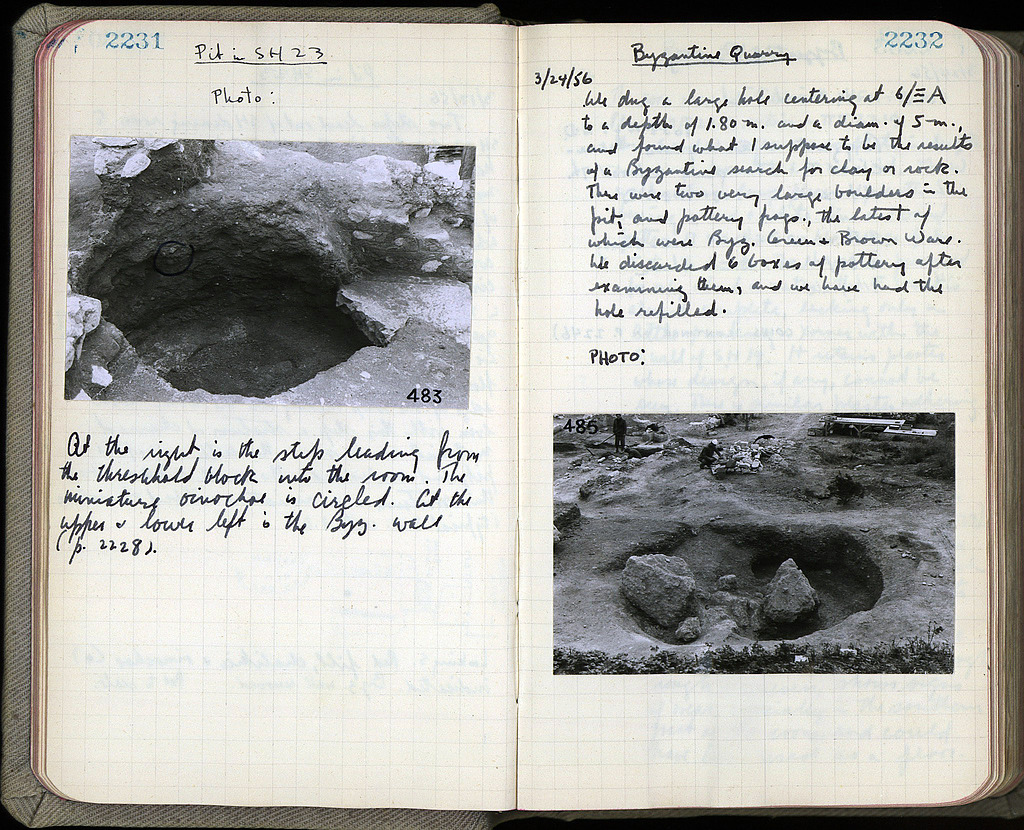 2231
Pit in SH 23
Photo:
483
At the right is the step leading from
the threshhold block into the room. The
miniature oinochoe is circled. At the
upper & lower left is the Byz. wall
(p. 2228).
2232
Byzantine Quarry
3/24/56
We dug a large hole centering at 6/ΞA
to a depth of 1.80 m. and a diam. of 5 m.,
and found what I suppose to be the results
of a Byzantine search for clay or rock.
There were two very large boulders in the
pit, and pottery frags., the latest of
which were Byz. Green & Brown Ware.
We discarded 6 boxes of pottery after
examining them, and we have had the
hole refilled.
PHOTO:
485